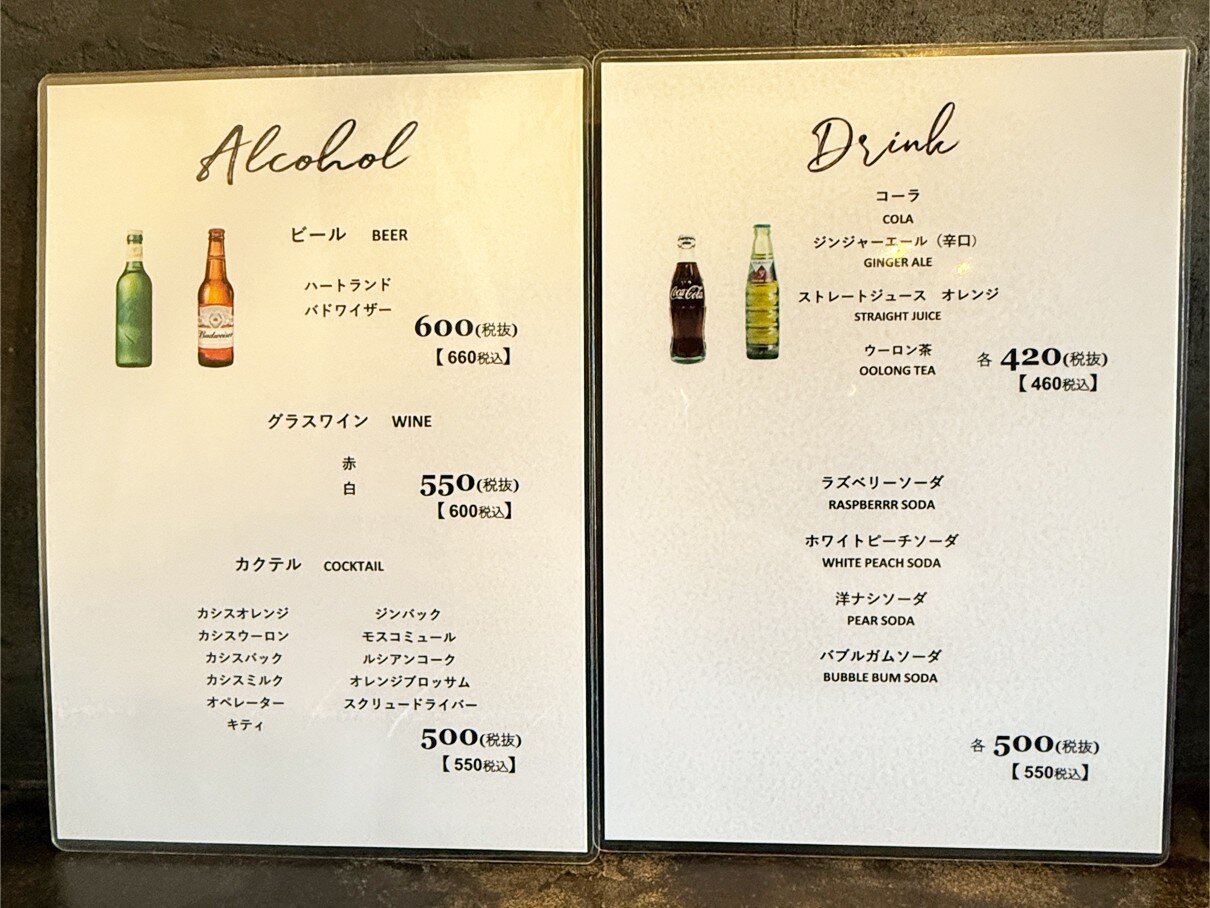 Alcohol
ビール BEER
ハートランド
バドワイザー
Budweiser
600(税抜)
【660税込】
グラスワイン WINE
赤
白
550(税抜)
【600税込】
カクテル COCKTAIL
カシスオレンジ ジンバック
カシスウーロン モスコミュール
カシスバック ルシアンコーク
カシスミルク オレンジブロッサム
オペレーター スクリュードライバー
キティ
500(税抜)
【550税込】
Drink
コーラ
COLA
ジンジャーエール（辛口）
GINGER ALE
Coca-Cola
ストレートジュース オレンジ
STRAIGHT JUICE
ウーロン茶
OOLONG TEA
各 420(税抜)
【460税込】
ラズベリーソーダ
RASPBERRR SODA
ホワイトピーチソーダ
WHITE PEACH SODA
洋ナシソーダ
PEAR SODA
バブルガムソーダ
BUBBLE BUM SODA
各 500(税抜)
【550税込】